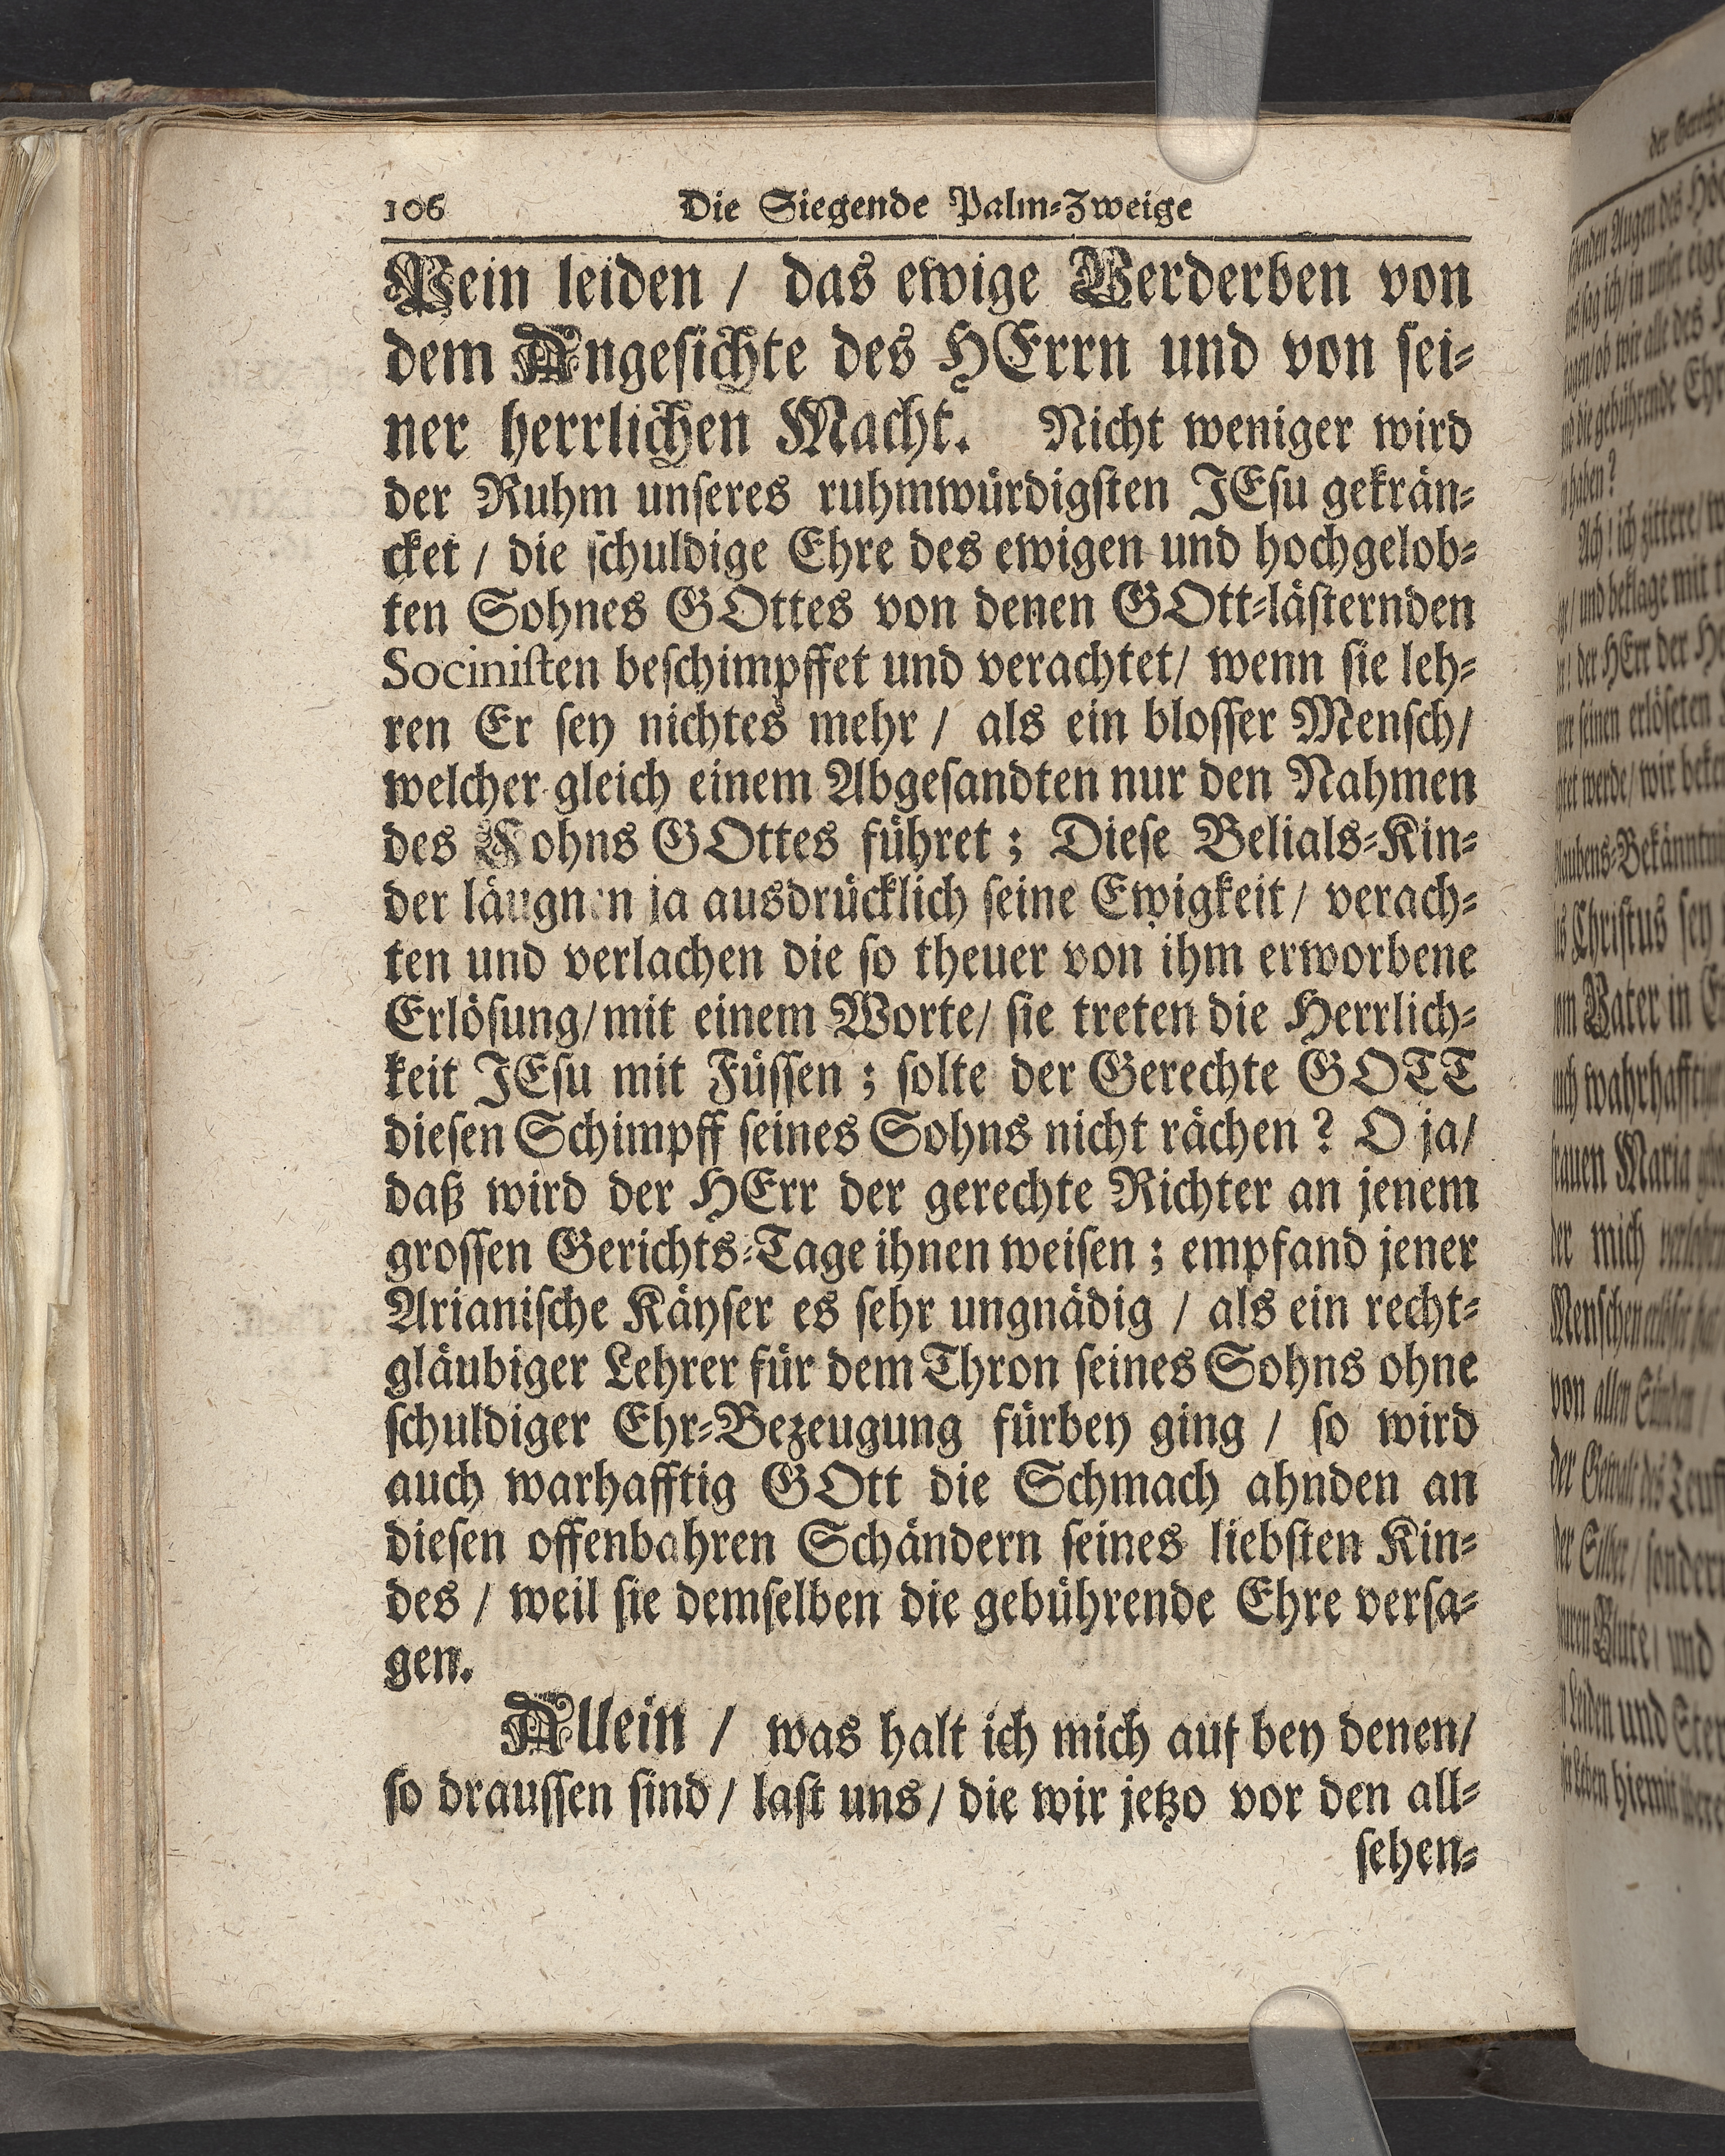 106 Die Siegende Palm-Zweige
Pein leiden / das ewige Verderben von
dem Angesichte des HErrn und von sei-
ner herrlichen Macht. Nicht weniger wird
der Ruhm unseres ruhmwürdigsten JEsu gekrän-
cket / die schuldige Ehre des ewigen und hochgelob-
ten Sohnes GOttes von denen GOtt-lästernden
Socinisten beschimpffet und verachtet/ wenn sie leh-
ren Er sey nichtes mehr / als ein blosser Mensch/
welcher gleich einem Abgesandten nur den Nahmen
des Sohns GOttes führet ; Diese Belials-Kin-
der läugnen ja ausdrücklich seine Ewigkeit / verach-
ten und verlachen die so theuer von ihm erworbene
Erlösung/ mit einem Worte/ sie treten die Herrlich-
keit JEsu mit Füssen ; solte der Gerechte GOTT
diesen Schimpff seines Sohns nicht rächen ? O ja/
daß wird der HErr der gerechte Richter an jenem
grossen Gerichts-Tage ihnen weisen ; empfand jener
Arianische Käyser es sehr ungnädig / als ein recht-
gläubiger Lehrer für dem Thron seines Sohns ohne
schuldiger Ehr-Bezeugung fürbey ging / so wird
auch warhafftig GOtt die Schmach ahnden an
diesen offenbahren Schändern seines liebsten Kin-
des / weil sie demselben die gebührende Ehre versa-
gen.
Allein / was halt ich mich auf bey denen/
so draussen sind / last uns / die wir jetzo vor den all-
sehen-